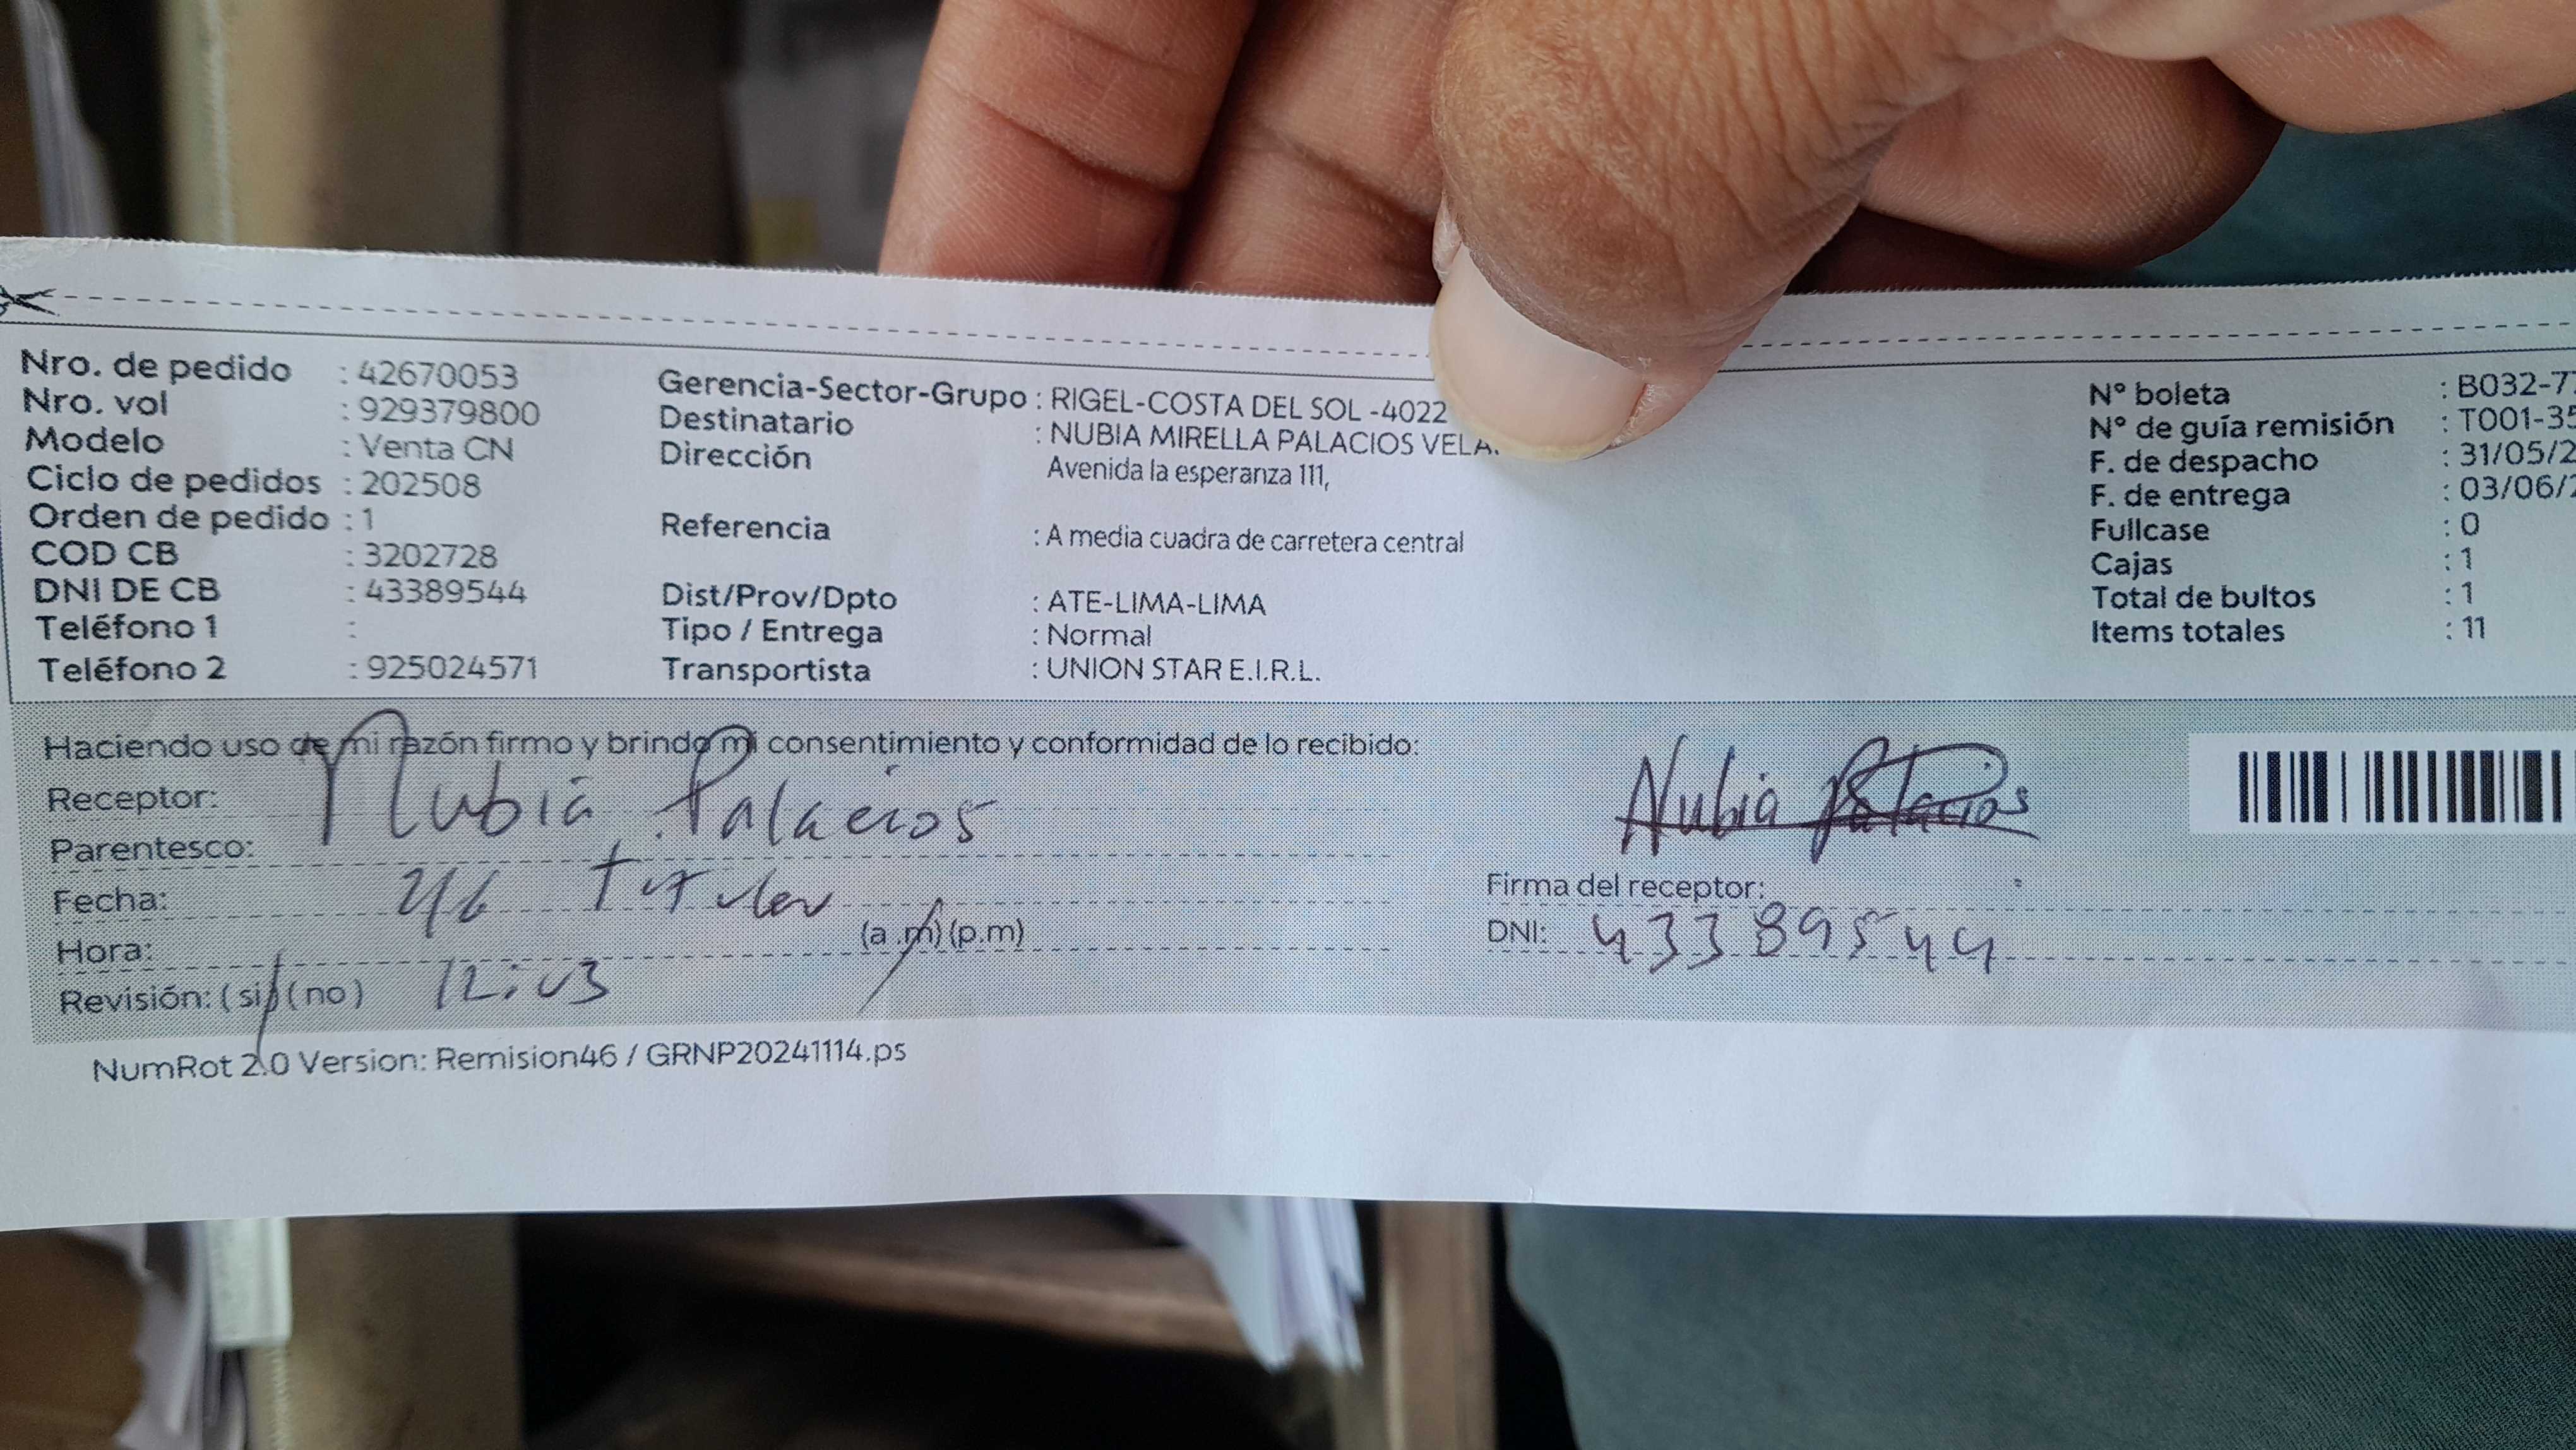 Nro. de pedido : 42670053
Nro. vol : 929379800
Modelo : Venta CN
Ciclo de pedidos : 202508
Orden de pedido : 1
COD CB : 3202728
DNI DE CB : 43389544
Teléfono 1 :
Teléfono 2 : 925024571
Gerencia-Sector-Grupo : RIGEL-COSTA DEL SOL -4022
Destinatario : NUBIA MIRELLA PALACIOS
Dirección Avenida la esperanza 111,
Referencia : A media cuadra de carretera central
Dist/Prov/Dpto : ATE-LIMA-LIMA
Tipo / Entrega : Normal
Transportista : UNION STAR E.I.R.L.
Nº boleta : B032-7
Nº de guía remisión : T001-35
F. de despacho : 31/05/2
F. de entrega : 03/06/2
Fullcase : 0
Cajas : 1
Total de bultos : 1
Items totales : 11
Haciendo uso de mi razón firmo y brindo mi consentimiento y conformidad de lo recibido:
Receptor: Nubia Palacios
Parentesco: Titular
Fecha: 2/6
Hora: 12:03 (a.m) (p.m)
Revisión: (si) (no)
Nubia Palacios
Firma del receptor:
DNI: 43389544
NumRot 2.0 Version: Remision46 / GRNP20241114.ps